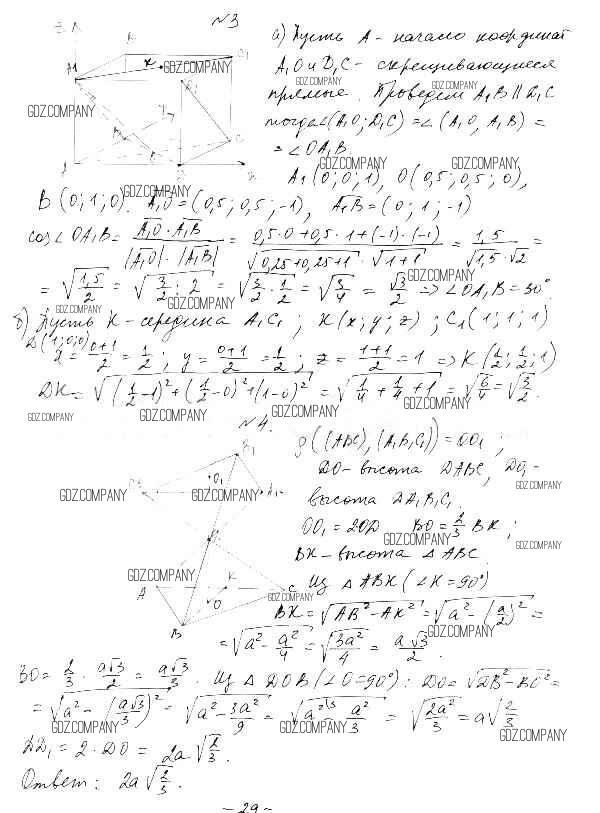 N3
а) Пусть A - начало координат
A₁O и D₁C - скрещивающиеся
прямые. Проведем A₁B || D₁C
тогда ∠(A₁O; D₁C) = ∠(A₁O, A₁B) =
= ∠OA₁B.
A₁(0; 0; 1), O(0,5; 0,5; 0),
B(0; 1; 0). A₁O = (0,5; 0,5; -1), A₁B = (0; 1; -1)
cos∠OA₁B = A₁O · A₁B / |A₁O| · |A₁B| = 0,5·0 + 0,5·1 + (-1)·(-1) / √(0,25+0,25+1) · √(1+1) = 1,5 / √1,5 · √2 =
= √(1,5/2) = √(3/2 : 2) = √(3/2 · 1/2) = √(3/4) = √3/2 => ∠OA₁B = 30°
б) Пусть K - середина A₁C₁; K(x; y; z); C₁(1; 1; 1)
D(1; 0; 0)
x = 0+1/2 = 1/2; y = 0+1/2 = 1/2; z = 1+1/2 = 1 => K(1/2; 1/2; 1)
DK = √((1/2 - 1)² + (1/2 - 0)² + (1-0)²) = √(1/4 + 1/4 + 1) = √(6/4) = √(3/2).
N4.
ρ((ABC), (A₁B₁C₁)) = OO₁;
DO - высота DABC, DO₁ -
высота DA₁B₁C₁
OO₁ = 2OD BO = 2/3 BK;
BK - высота △ABC
Из △ABK (∠K = 90°)
BK = √(AB² - AK²) = √(a² - (a/2)²) =
= √(a² - a²/4) = √(3a²/4) = a√3/2.
BO = 2/3 · a√3/2 = a√3/3. Из △DOB (∠O = 90°): DO = √(DB² - BO²) =
= √(a² - (a√3/3)²) = √(a² - 3a²/9) = √(a² - a²/3) = √(2a²/3) = a√(2/3)
DD₁ = 2 · DO = 2a√(2/3).
Ответ: 2a√(2/3).
- 29 -
GDZ.COMPANY